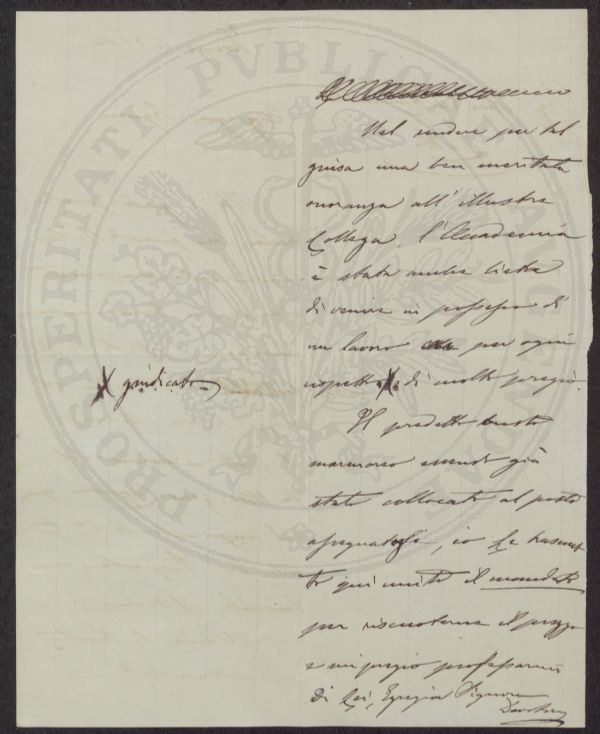 Nel rendere per tal
guisa una ben meritata
onoranza all'illustre
Collega, l'Accademia
è stata anche lieta
di venire in possesso di
un lavoro per ogni
rispetto X di molto pregio.
X giudicato
Il predetto busto
marmoreo essendo già
stato collocato al posto
assegnatogli, io Le trasmet-
to qui unito il mandato
per riscuoterne il prezzo
e mi pregio professarmi
Di Lei, Egregio Signore
PROSPERITATI PVBLICAE AVGENDAE